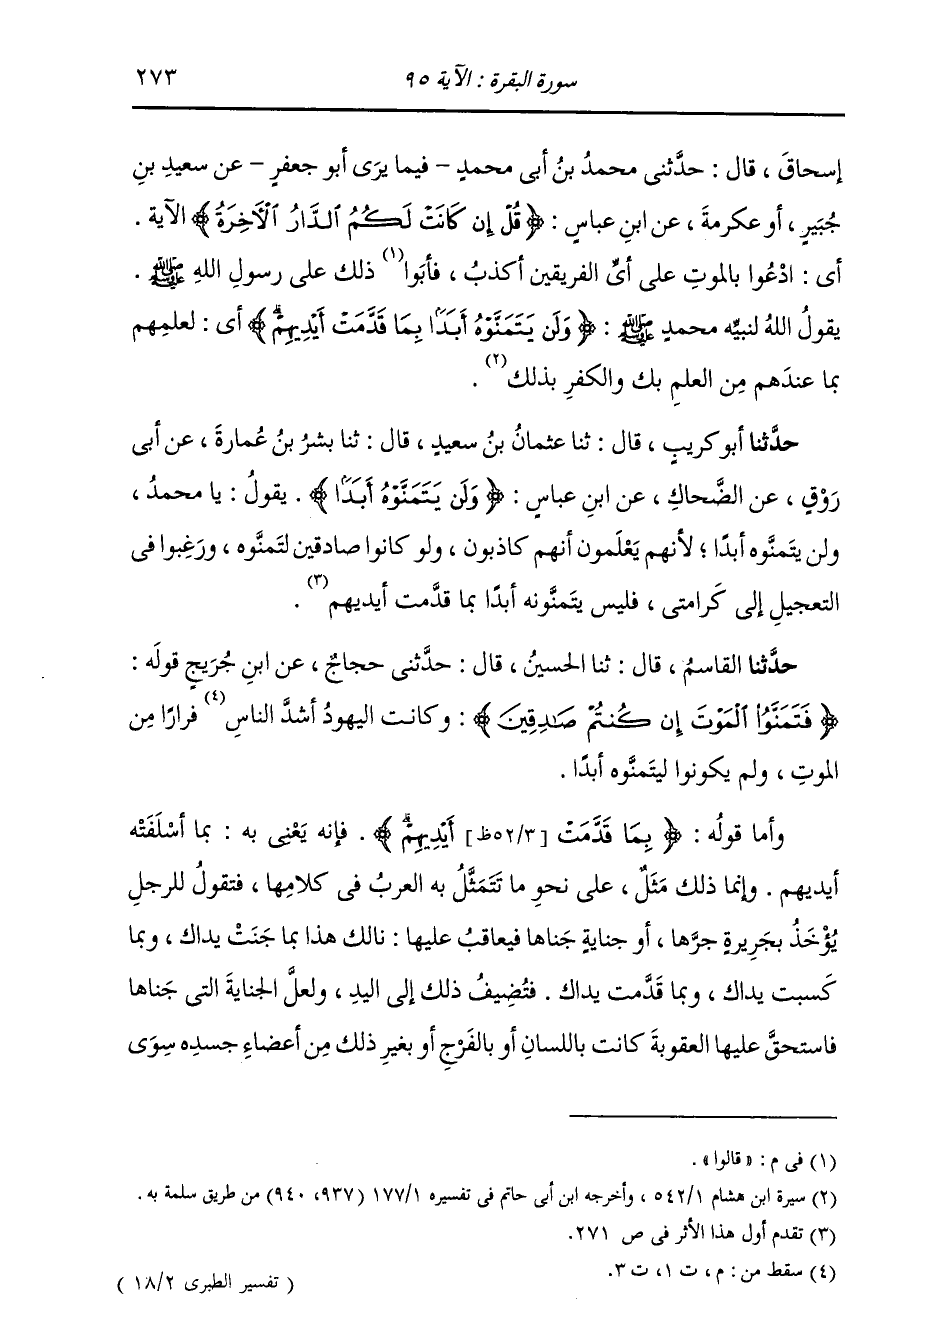 سورة البقرة : الآية ٩٥ ٢٧٣
إسحاقَ ، قال : حدَّثنى محمدُ بنُ أبى محمدٍ – فيما يرَى أبو جعفرٍ – عن سعيدِ بنِ
جُبَيرٍ ، أو عكرمةَ ، عن ابنِ عباسٍ : ﴿ قُلْ إِن كَانَتْ لَكُمُ ٱلدَّارُ ٱلْآخِرَةُ ﴾ الآية .
أى : ادْعُوا بالموتِ على أىِّ الفريقين أكذبُ ، فأبَوا(١) ذلك على رسولِ اللهِ ﷺ .
يقولُ اللهُ لنبيِّه محمدٍ ﷺ : ﴿ وَلَن يَتَمَنَّوْهُ أَبَدًۢا بِمَا قَدَّمَتْ أَيْدِيهِمْۗ ﴾ أى : لعلمِهم
بما عندَهم مِن العلمِ بك والكفرِ بذلك(٢) .
حدَّثنا أبو كريبٍ ، قال : ثنا عثمانُ بنُ سعيدٍ ، قال : ثنا بشرُ بنُ عُمارةَ ، عن أبى
رَوْقٍ ، عن الضَّحاكِ ، عن ابنِ عباسٍ : ﴿ وَلَن يَتَمَنَّوْهُ أَبَدًۢا ﴾ . يقولُ : يا محمدُ ،
ولن يتمنَّوه أبدًا ؛ لأنهم يَعْلَمون أنهم كاذبون ، ولو كانوا صادقين لتمنَّوه ، ورَغِبوا فى
التعجيلِ إلى كَرامتى ، فليس يتَمنَّونه أبدًا بما قدَّمت أيديهم(٣) .
حدَّثنا القاسمُ ، قال : ثنا الحسينُ ، قال : حدَّثنى حجاجٌ ، عن ابنِ جُرَيجٍ قولَه :
﴿ فَتَمَنَّوُا۟ ٱلْمَوْتَ إِن كُنتُمْ صَـٰدِقِينَ ﴾ : وكانت اليهودُ أشدَّ الناسِ(٤) فرارًا مِن
الموتِ ، ولم يكونوا ليتَمنَّوه أبدًا .
وأما قولُه : ﴿ بِمَا قَدَّمَتْ [٥٢/٣ظ] أَيْدِيهِمْۗ ﴾ . فإنه يَعْنِى به : بما أسْلَفَتْه
أيديهم . وإنما ذلك مَثَلٌ ، على نحوِ ما تَتَمَثَّلُ به العربُ فى كلامِها ، فتقولُ للرجلِ
يُؤْخَذُ بجَرِيرةٍ جرَّها ، أو جنايةٍ جَناها فيعاقبُ عليها : نالك هذا بما جَنَتْ يداك ، وبما
كَسبت يداك ، وبما قَدَّمت يداك . فتُضِيفُ ذلك إلى اليدِ ، ولعلَّ الجنايةَ التى جَناها
فاستحقَّ عليها العقوبةَ كانت باللسانِ أو بالفَرْجِ أو بغيرِ ذلك مِن أعضاءِ جسدِه سِوَى
(١) فى م : « قالوا » .
(٢) سيرة ابن هشام ٥٤٢/١ ، وأخرجه ابن أبى حاتم فى تفسيره ١٧٧/١ (٩٣٧، ٩٤٠) من طريق سلمة به .
(٣) تقدم أول هذا الأثر فى ص ٢٧١.
(٤) سقط من : م ، ت ١، ت ٣.
( تفسير الطبرى ١٨/٢ )